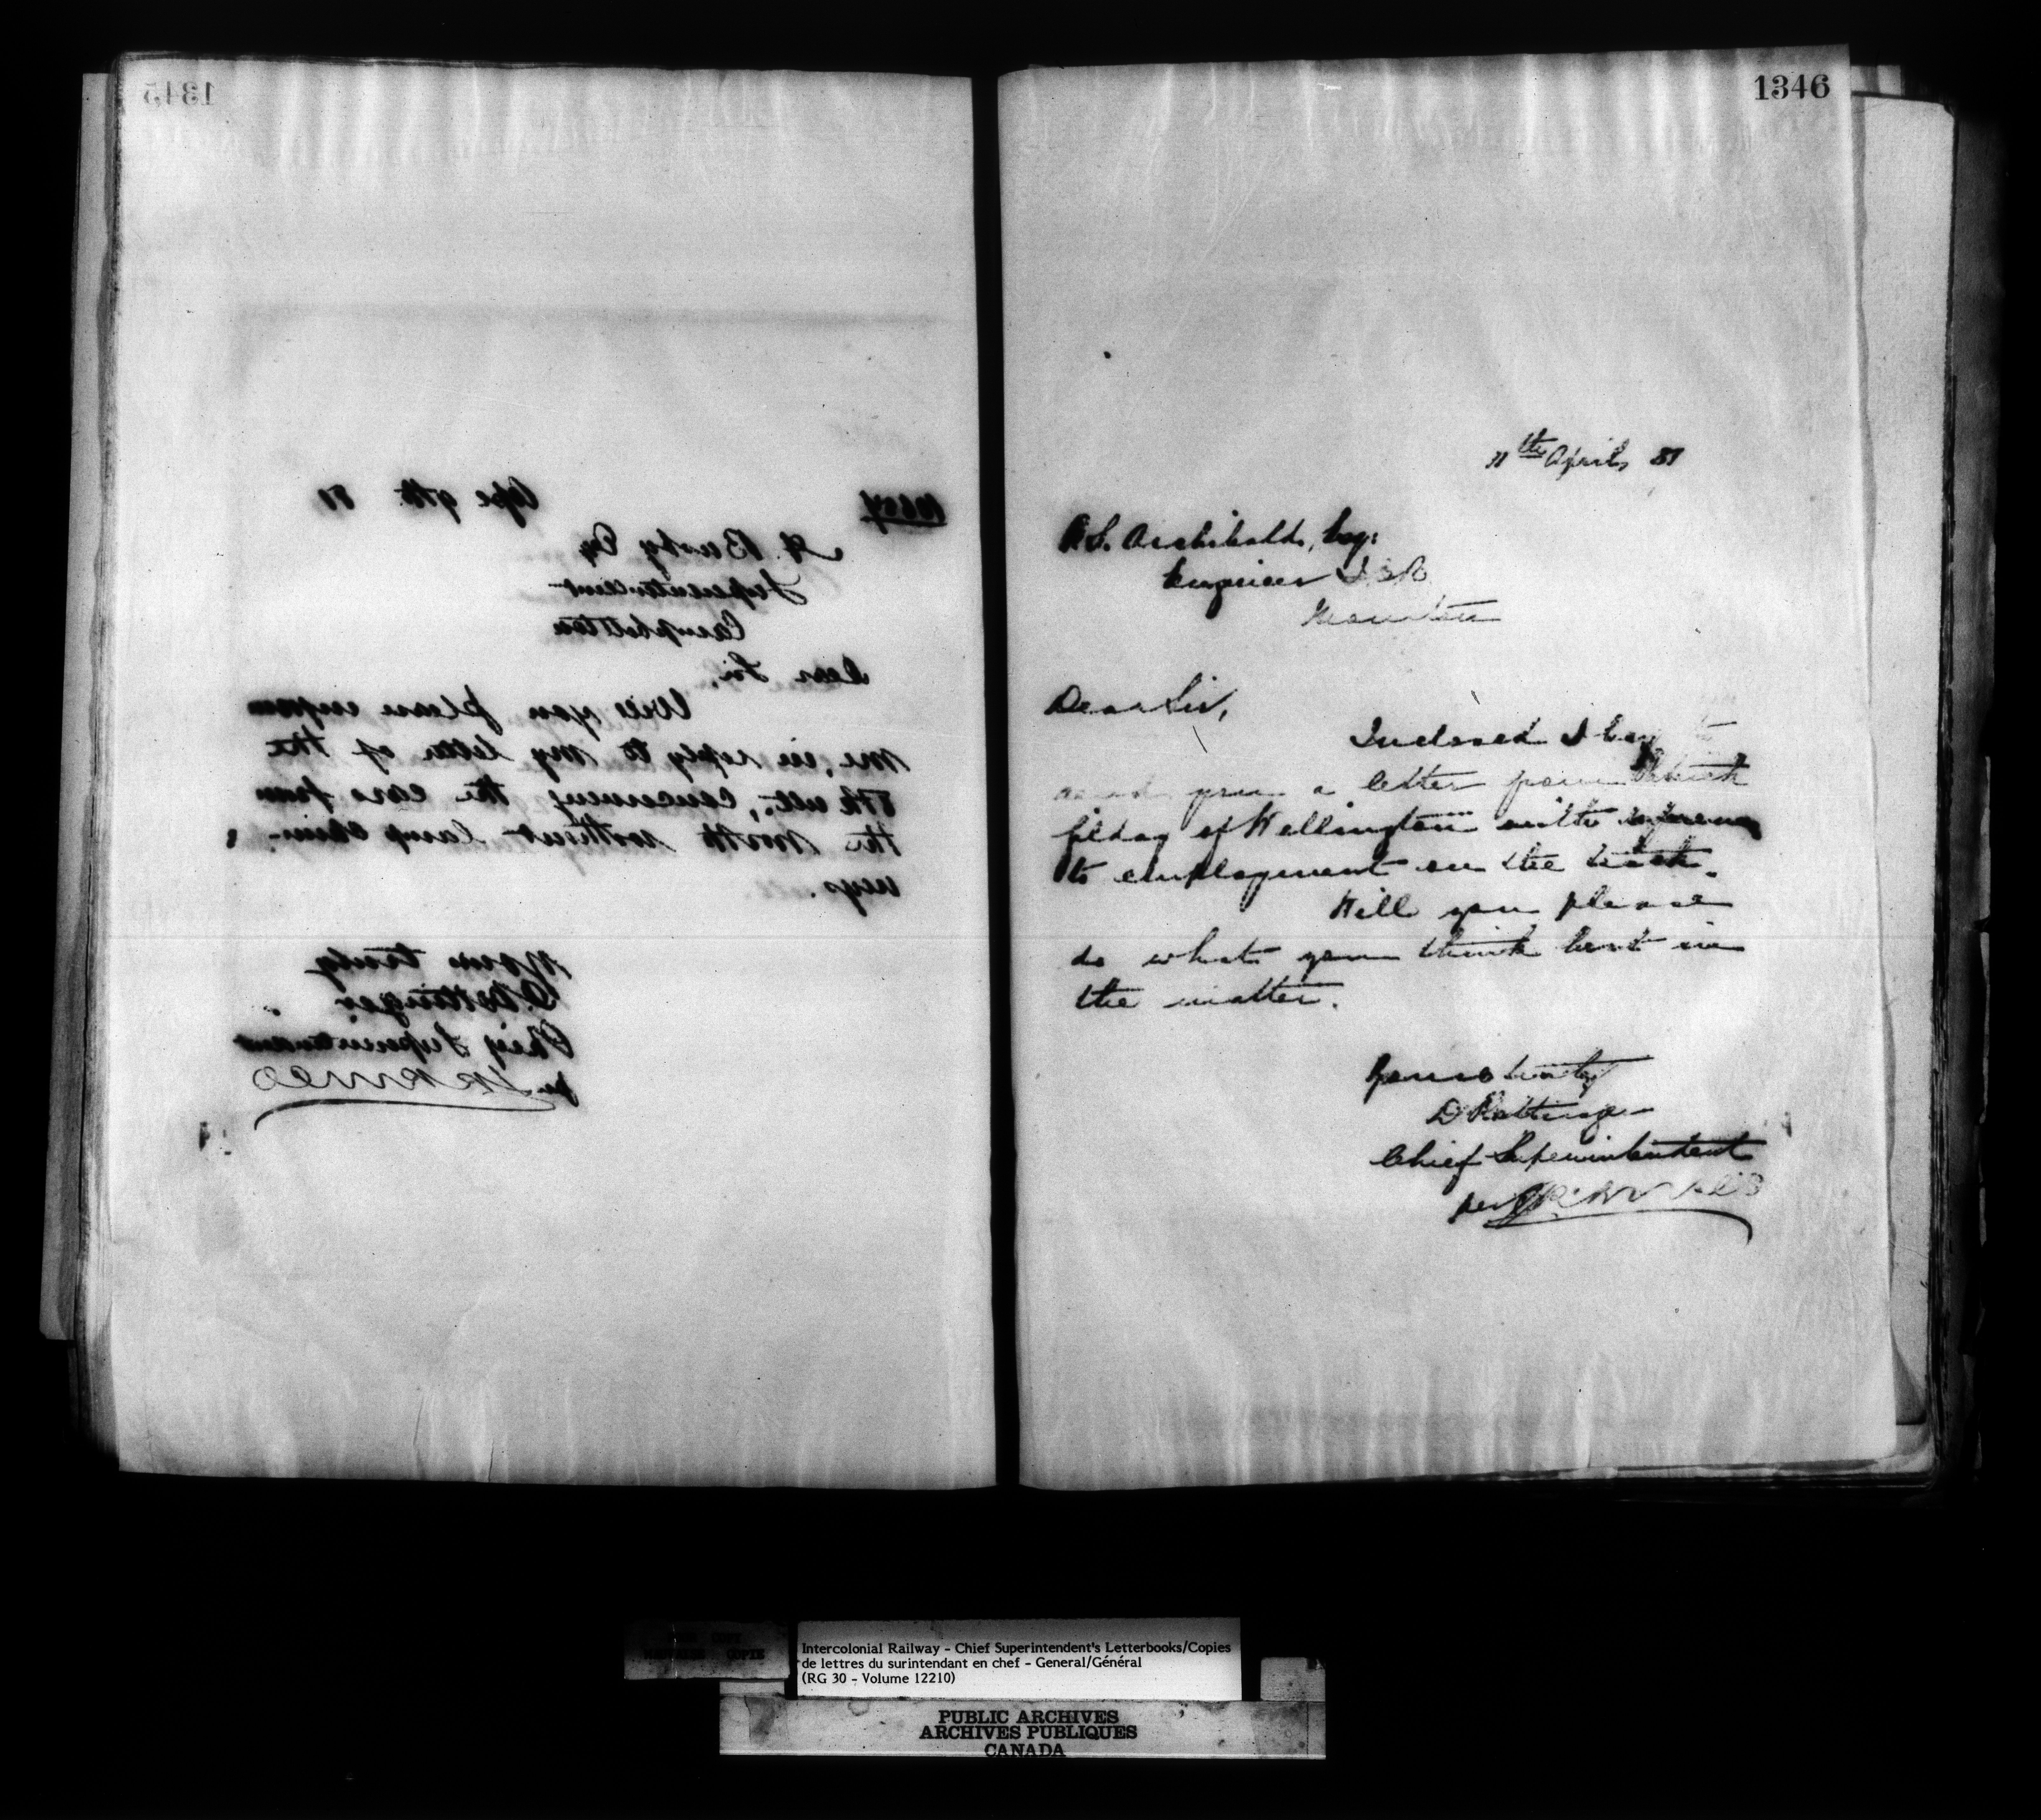 1345
10554 Apl 9th 81
A. Busby Esq
Superintendent
Campbellton
Dear Sir,
Will you please inform
me, in reply to my letter of the
8th ult., concerning the cars from
the North without lamp chim-
neys.
Yours truly
D. Pottinger
Chief Superintendent
per
1346
11th April, 81
P.S. Archibald, Esq:
Engineer I.C.R.
Moncton
Dear Sir,
Inclosed I beg to
send you a letter from
of Wellington with reference
to employment on the track.
Will you please
do what you think best in
the matter.
Yours truly
D Pottinger
Chief Superintendent
per
Intercolonial Railway - Chief Superintendent's Letterbooks/Copies
de lettres du surintendant en chef - General/Général
(RG 30 - Volume 12210)
COPY
COPIE
PUBLIC ARCHIVES
ARCHIVES PUBLIQUES
CANADA